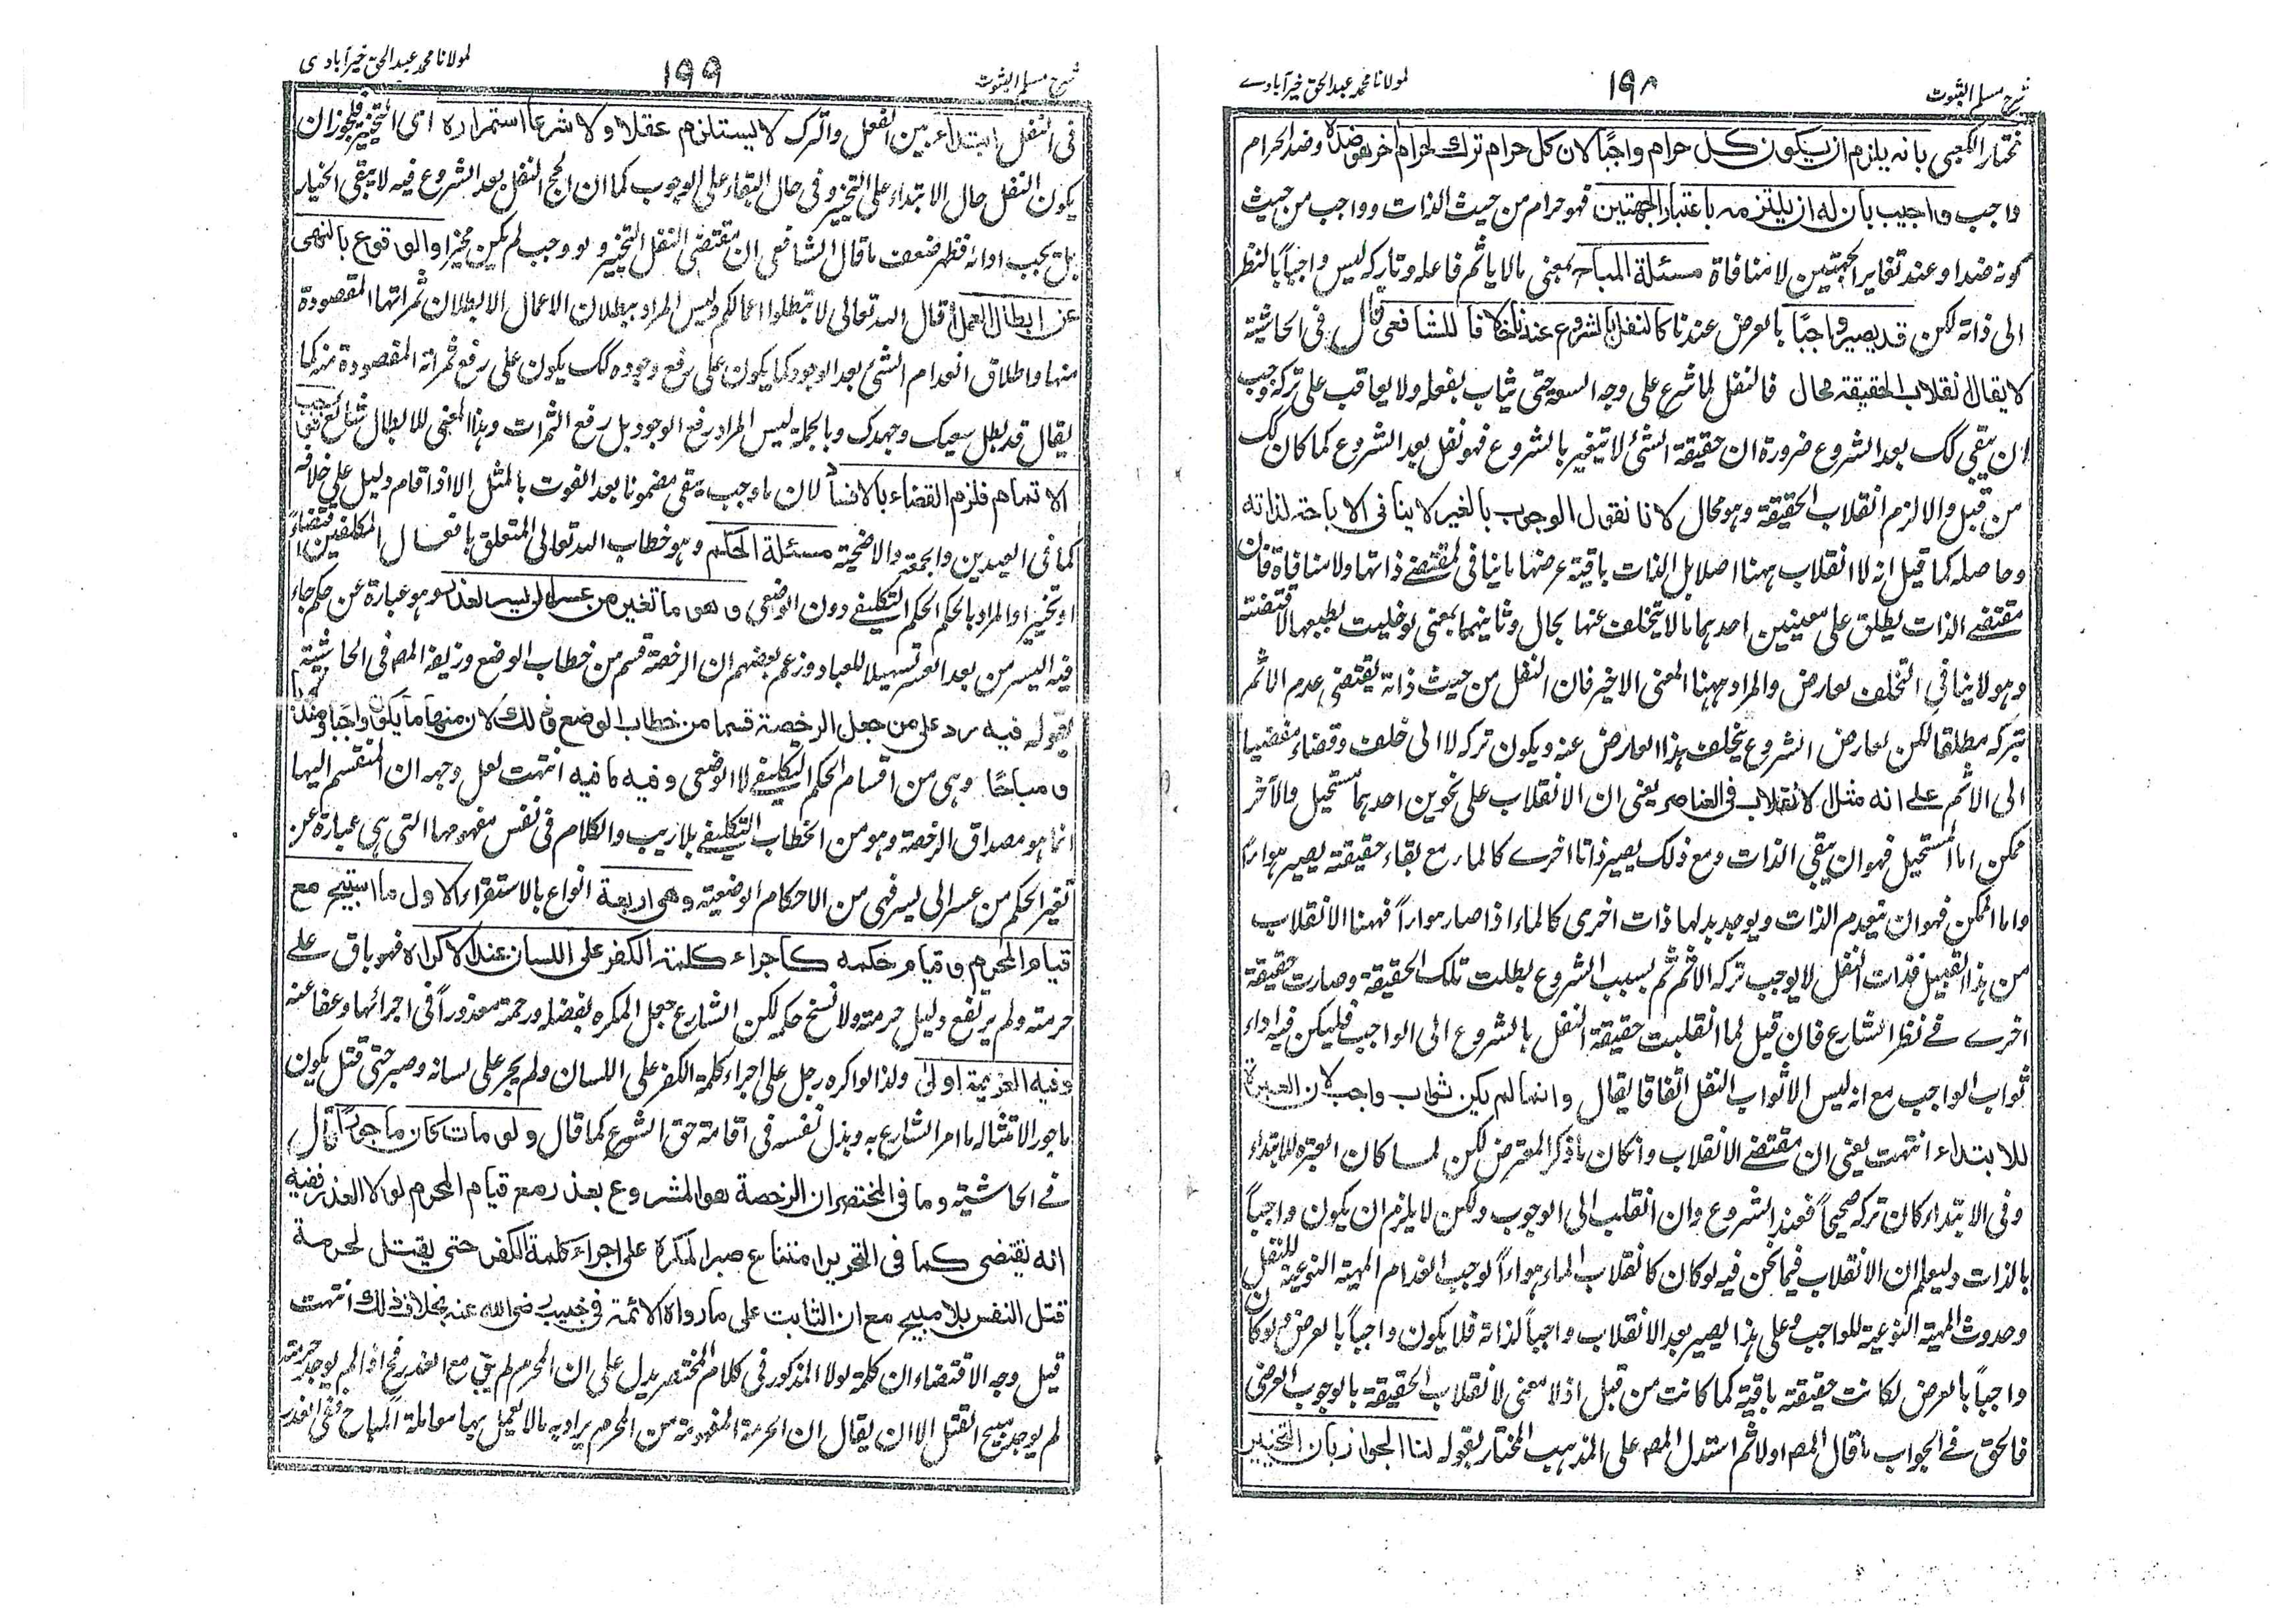 شرح مسلم الثبوت
١٩٨
لمولانا محمد عبدالحق خیرآبادے
مختار الكعبى بانه يلزم ان يكون كل حرام واجبًا لان كل حرام ترك لحرام اخر هو ضده وضد الحرام
واجب واجيب بان له ان يلتزمه باعتبار الجهتين فهو حرام من حيث الذات وواجب من حيث
كونه ضدا وعند تغاير الجهتين لا منافاة مسئلة المباح بمعنى مالا ياثم فاعله وتاركه ليس واجباً بالنظر
الى ذاته لكن قد يصير واجبًا بالعرض عندنا كالنفل بالشروع عندنا خلافا للشافعى قال فى الحاشية
لا يقال انقلاب الحقيقة محال فالنفل لما شرع على وجه السعة حتى يثاب بفعله ولا يعاقب على تركه وجب
ان يبقى كك بعد الشروع ضرورة ان حقيقة الشئ لا تتغير بالشروع فهو نفل بعد الشروع كما كان كك
من قبل والا لزم انقلاب الحقيقة وهو محال لانا نقول الوجوب بالغير لا ينافى الاباحة لذاته
وحاصله كما قيل انه لا انقلاب ههنا اصلا بل الذات باقية عرضها ما ينافى لمقتضے ذاتها ولا منافاة فان
مقتضے الذات يطلق على معنيين احدهما ما لا يتخلف عنها بحال وثانيهما بمعنى لو خليت بطبيعها لاقتضته
وهو لا ينافى التخلف لعارض والمراد ههنا المعنى الاخير فان النفل من حيث ذاته يقتضى عدم الاثم
بتركه مطلقا لكن لعارض الشروع يتخلف هذا العارض عنه ويكون تركه لا الى خلف وقضاء مفضيا
الى الاثم على انه مثل الانقلاب فى العناصر يعنى ان الانقلاب على نحوين احدهما مستحيل والآخر
ممكن اما المستحيل فهو ان يبقى الذات ومع ذلك يصير ذاتا اخرے كالماء مع بقاء حقيقته يصير هواءً
واما الممكن فهو ان ينعدم الذات ويوجد بدلها ذات اخرى كالماء اذا صار هواءً فههنا الانقلاب
من هذا القبيل فذات النفل لا يوجب تركه الاثم ثم بسبب الشروع بطلت تلك الحقيقة وصارت حقيقة
اخرے فے نظر الشارع فان قيل لما انقلبت حقيقة النفل بالشروع الى الواجب فليكن فيه اداء
ثواب الواجب مع انه ليس الا ثواب النفل اتفاقا يقال وانما لم يكن ثواب واجب لان العبرة
للابتداء انتهت يعنى ان مقتضے الانقلاب وان كان ما ذكر المعترض لكن لما كان العبرة للابتداء
وفى الابتداء كان تركه صحيحاً فعند الشروع وان انقلب الى الوجوب ولكن لا يلزم ان يكون واجباً
بالذات وليعلم ان الانقلاب فيما نحن فيه لو كان كانقلاب الماء هواءاً لوجب انعدام المهية النوعية للنفل
وحدوث المهية النوعية للواجب وعلى هذا يصير بعد الانقلاب واجباً لذاته فلا يكون واجباً بالعرض ولو كان
واجباً بالعرض لكانت حقيقته باقية كما كانت من قبل اذ لا معنى لانقلاب الحقيقة بالوجوب العرضى
فالحق فے الجواب ما قال المصـ اولا ثم استدل المصـ على المذهب المختار بقوله لنا الجواز بان التخيير
شرح مسلم الثبوت
١٩٩
لمولانا محمد عبدالحق خیرآبادی
فى النفل ابتداءً بين الفعل والترك لا يستلزم عقلا ولا شرعا استمراره اى التخيير فيجوز ان
يكون النفل حال الابتداء على التخيير وفى حال البقاء على الوجوب كما ان الحج النفل بعد الشروع فيه لا يبقى الخيار
بل يجب ادائه فظهر ضعف ما قال الشافعى ان مقتضى النفل التخيير ولو وجب لم يكن مخيرا والوقوع بالنهى
عن ابطال العمل قال الله تعالى لا تبطلوا اعمالكم وليس المراد ببطلان الاعمال الا بطلان ثمراتها المقصودة
منها واطلاق انعدام الشئ بعد الوجود كما يكون على رفع وجوده كك يكون على رفع ثمراته المقصودة منه كما
يقال قد بطل سعيك وجهدك وبالجملة ليس المراد رفع الوجود بل رفع الثمرات وهذا المعنى للابطال شائع فيجب
الاتمام فلزم القضاء بالافساد لان ما وجب يبقى مضمونا بعد الفوت بالمثل الا اذا قام دليل على خلافه
كما فى العيدين والجمعة والاضحية مسئلة الحكم وهو خطاب الله تعالى المتعلق بافعال المكلفين اقتضاءً
او تخييرا والمراد بالحكم الحكم التكليفے دون الوضعى وهو ما تغير من عسر الى يسر لعذر وهو عبارة عن حكم جاء
فيه اليسر من بعد العسر تسهيلا للعباد وزعم بعضهم ان الرخصة قسم من خطاب الوضع وزيفه المصـ فى الحاشية
بقوله فيه رد على من جعل الرخصة قسما من خطاب الوضع وذلك لان منها ما يكون واجبا ومندوبا
ومباحًا وهى من اقسام الحكم التكليفے لا الوضعى وفيه ما فيه انتهت لعل وجهه ان المنقسم اليها
انما هو مصداق الرخصة وهو من الخطاب التكليفے بلا ريب والكلام فى نفس مفهومها التى هى عبارة عن
تغير الحكم من عسر الى يسر فهى من الاحكام الوضعية وهى اربعة انواع بالاستقراء الاول ما استبيح مع
قيام المحرم وقيام حكمه كاجراء كلمة الكفر على اللسان عند الاكراه فهو باق على
حرمته ولم يرتفع دليل حرمته ولا نسخ حكمه لكن الشارع جعل المكره بفضله ورحمته معذوراً فى اجرائها وعفا عنه
وفيه العزيمة اولى ولذا لو اكره رجل على اجراء كلمة الكفر على اللسان ولم يجر على لسانه وصبر حتى قتل يكون
ماجورا لامتثاله ما امر الشارع به وبذل نفسه فى اقامة حق الشرع كما قال ولو مات كان ماجورًا قال
فے الحاشية وما فى المختصر ان الرخصة هو المشروع بعذر مع قيام المحرم لولا العذر ففيه
انه يقتضى كما فى التحرير امتناع صبر المكره على اجراء كلمة الكفر حتى يقتل لحرمة
قتل النفس بلا مبيح مع ان الثابت على ما رواه الائمة فى خبيب رضى الله عنه بخلاف ذلك انتهت
قيل وجه الاقتضاء ان كلمة لولا المذكور فى كلام المختصر يدل على ان المحرم لم يبق مع العذر فح اذا لم يوجد حرمته
لم يوجد مبيح القتل الا ان يقال ان الحرمة المفهومة من المحرم يراد به ما لا يعمل بها معاملة المباح ففى العذر